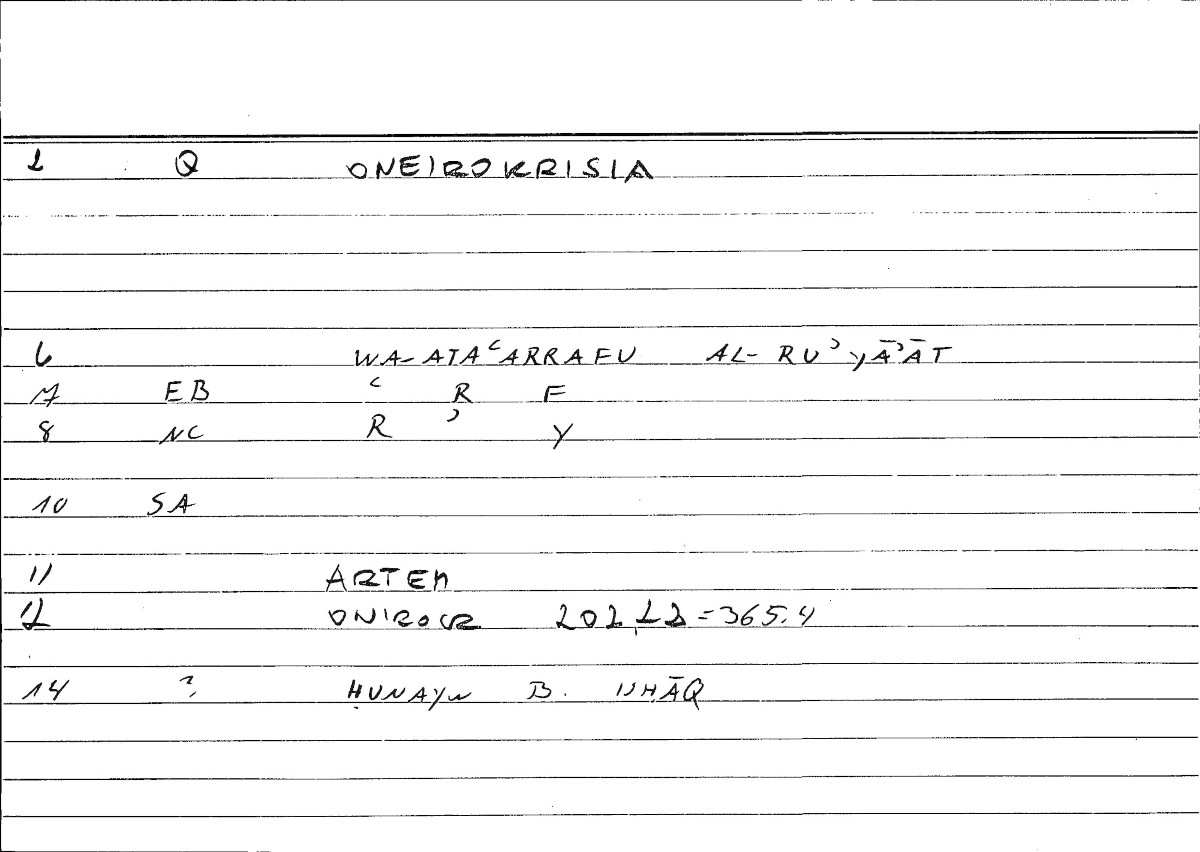 2 Q ONEIROKRISIA
6 WA-ATAʿARRAFU AL-RUʾYĀʾĀT
7 EB ʿ R F
8 NC R ʾ Y
10 SA
11 ARTEM
12 ONIROCR 202,22=365.4
14 ? ḤUNAYN B. ISḤĀQ